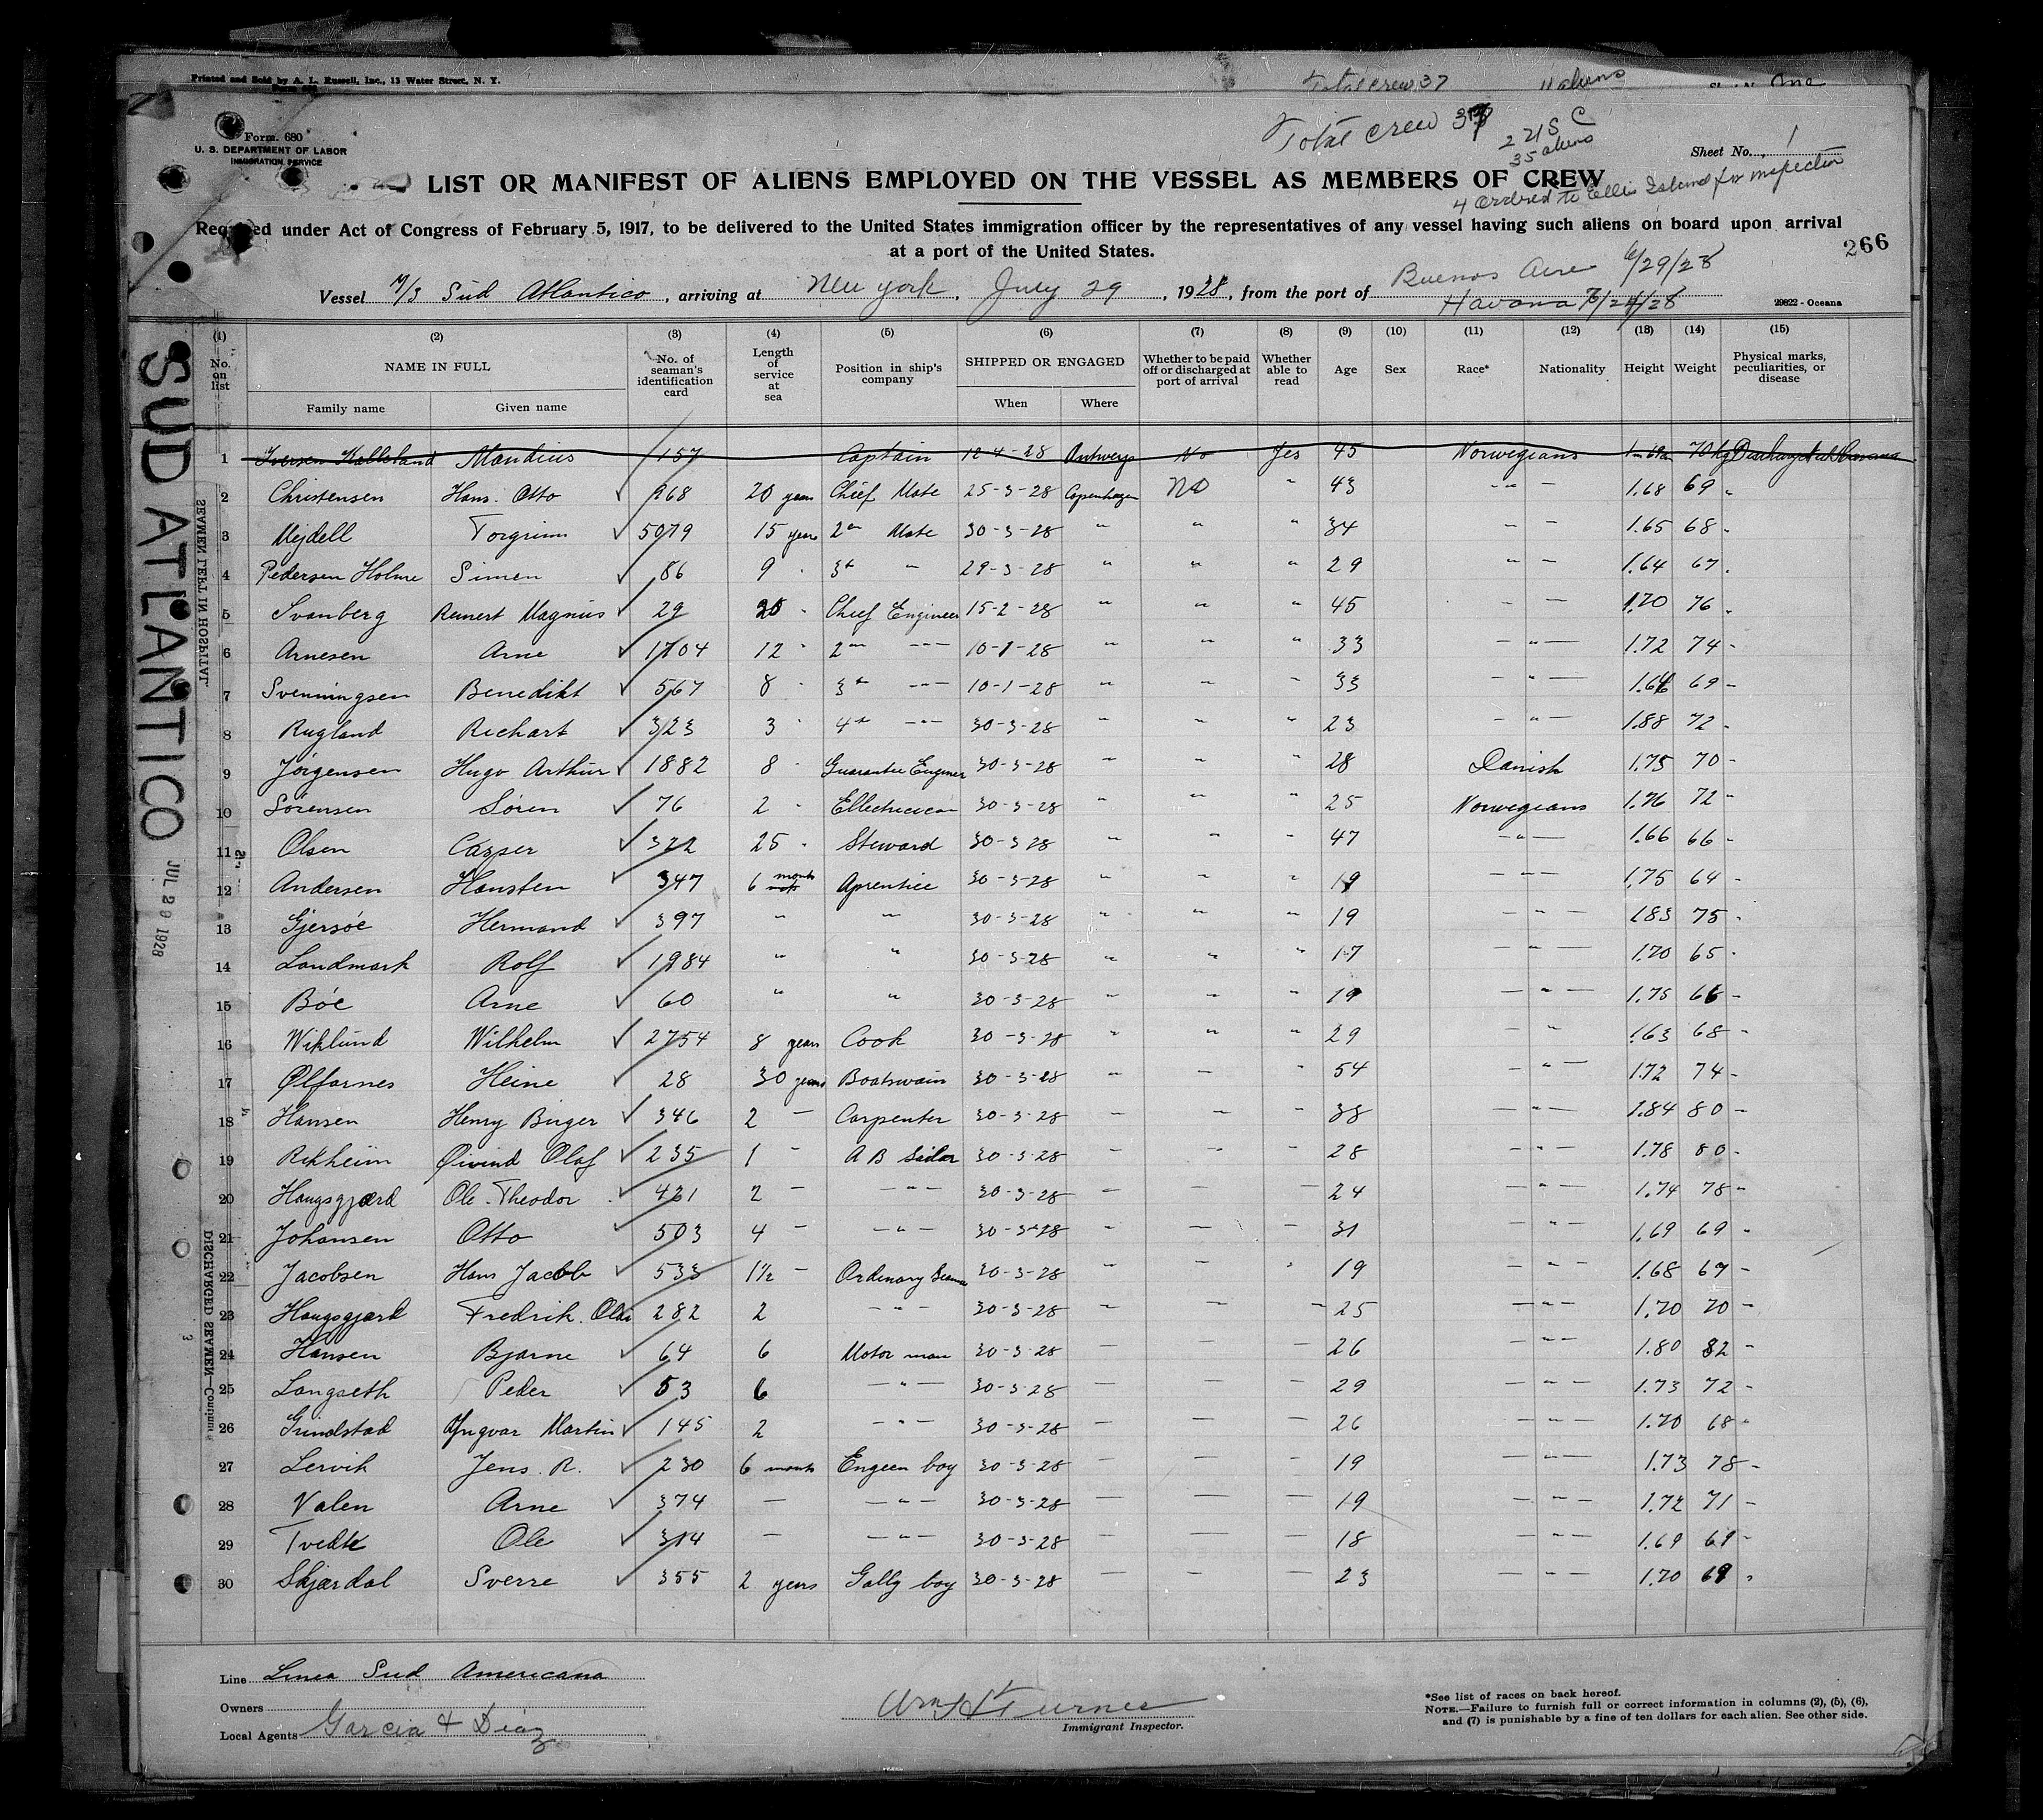 Printed and Sold by A. L. Russell, Inc., 13 Water Street, N. Y.
Total crew 37 11 aliens One
Form. 680
U. S. DEPARTMENT OF LABOR
IMMIGRATION SERVICE
Total crew 37
2 US C
35 aliens
Sheet No. 1
LIST OR MANIFEST OF ALIENS EMPLOYED ON THE VESSEL AS MEMBERS OF CREW
4 ordred to Ellis Island for inspection
Required under Act of Congress of February 5, 1917, to be delivered to the United States immigration officer by the representatives of any vessel having such aliens on board upon arrival
at a port of the United States.
266
Vessel M/S Sud Atlantico, arriving at New york, July 29, 1928, from the port of Buenos Aires 6/29/28
Havana 7/24/28
29822 - Oceana
(1) (2) (3) (4) (5) (6) (7) (8) (9) (10) (11) (12) (13) (14) (15)
No. on list NAME IN FULL No. of seaman's identification card Length of service at sea Position in ship's company SHIPPED OR ENGAGED Whether to be paid off or discharged at port of arrival Whether able to read Age Sex Race* Nationality Height Weight Physical marks, peculiarities, or disease
Family name Given name When Where
1 Iversen Kalleland Mandius 157 Captain 12-4-28 Antwerp No Yes 45 Norwegians 70 kg
2 Christensen Hans Otto 268 20 years Chief Mate 25-3-28 Copenhagen No " 43 " 1.68 69 "
3 Mejdell Torgrim 5079 15 years 2nd Mate 30-3-28 " " " 34 " 1.65 68 "
4 Pedersen Holme Simen 86 9 " 3rd " 29-3-28 " " " 29 " 1.64 67 "
5 Svanberg Reinert Magnus 29 20 " Chief Engineer 15-2-28 " " " 45 1.70 76 "
6 Arnesen Arne 1704 12 " 2nd " 10-1-28 " " " 33 " 1.72 74 "
7 Svenningsen Benedikt 567 8 " 3rd " 10-1-28 " " " 33 " 69 "
8 Rugland Richart 323 3 " 4th " 30-3-28 " " " 23 " 1.88 72 "
9 Jørgensen Hugo Arthur 1882 8 " Guarantee Engineer 30-3-28 " " " 28 Danish 1.75 70 "
10 Sørensen Søren 76 2 " Ellectricean 30-3-28 " " " 25 Norwegians 1.76 72 "
11 Olsen Casper 322 25 " Steward 30-3-28 " " " 47 " 1.66 66 "
12 Andersen Karsten 347 6 months Aprentice 30-3-28 " " " 19 " 1.75 64 "
13 Gjersøe Hermand 397 " " 30-3-28 " " " 19 " 1.83 75 "
14 Landmark Rolf 1984 " " 30-3-28 " " " 17 " 1.70 65 "
15 Bøe Arne 60 " " 30-3-28 " " " 19 " 1.75 66 "
16 Wiklund Wilhelm 2754 8 years Cook 30-3-28 " " " 29 " 1.63 68 "
17 Ølfarnes Heine 28 30 years Boatswain 30-3-28 " " " 54 " 1.72 74 "
18 Hansen Henry Birger 346 2 " Carpenter 30-3-28 " " " 38 " 1.84 80 "
19 Rekheim Øivind Olaf 235 1 " A B Sailor 30-3-28 " " " 28 " 1.78 80 "
20 Haugsgjærd Ole Theodor 421 2 " " 30-3-28 " " " 24 " 1.74 78 "
21 Johansen Otto 503 4 " " 30-3-28 " " " 31 " 1.69 69 "
22 Jacobsen Hans Jacob 533 1½ " Ordenary Seaman 30-3-28 " " " 19 " 1.68 67 "
23 Haugsgjærd Fredrik Olai 282 2 " 30-3-28 " " " 25 " 1.70 70 "
24 Hansen Bjarne 64 6 Motor man 30-3-28 " " " 26 " 1.80 82 "
25 Langseth Peder 53 6 " 30-3-28 " " " 29 " 1.73 72 "
26 Grindstad Yngvar Martin 145 2 " 30-3-28 " " " 26 " 1.70 68 "
27 Lervik Jens R. 230 6 months Engeen boy 30-3-28 " " " 19 " 1.73 78 "
28 Valen Arne 374 " " 30-3-28 " " " 19 " 1.72 71 "
29 Tvedte Ole 314 " " 30-3-28 " " " 18 " 1.69 69 "
30 Skjærdal Sverre 355 2 years Gally boy 30-3-28 " " " 23 " 1.70 69 "
SUD ATLANTICO JUL 29 1928
SEAMEN LEFT IN HOSPITAL
DISCHARGED SEAMEN—Continued
Line Linea Sud Americana
Owners
Local Agents Garcia & Diaz
Wm H Turner
Immigrant Inspector.
*See list of races on back hereof.
NOTE.—Failure to furnish full or correct information in columns (2), (5), (6),
and (7) is punishable by a fine of ten dollars for each alien. See other side.